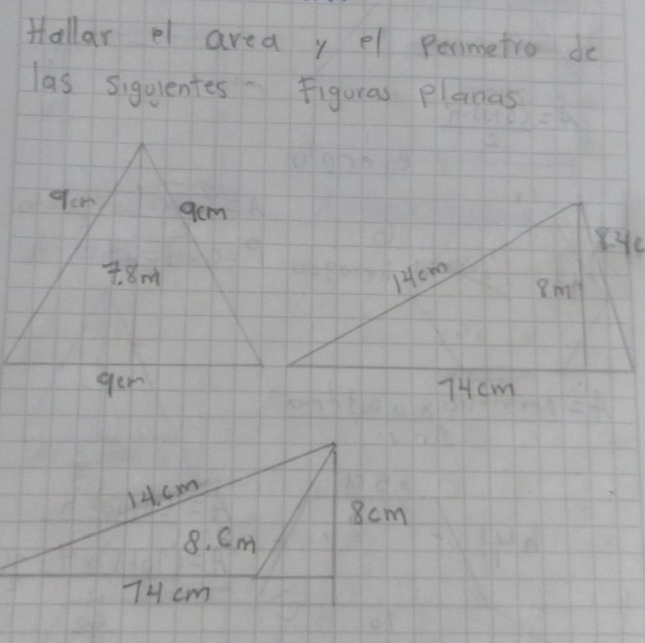 Hallar el area y el Perimetro de
las siguientes - Figuras Planas
9cm
9cm
7.8m
9cm
14cm
8m
74cm
14.cm
8cm
8.cm
74 cm